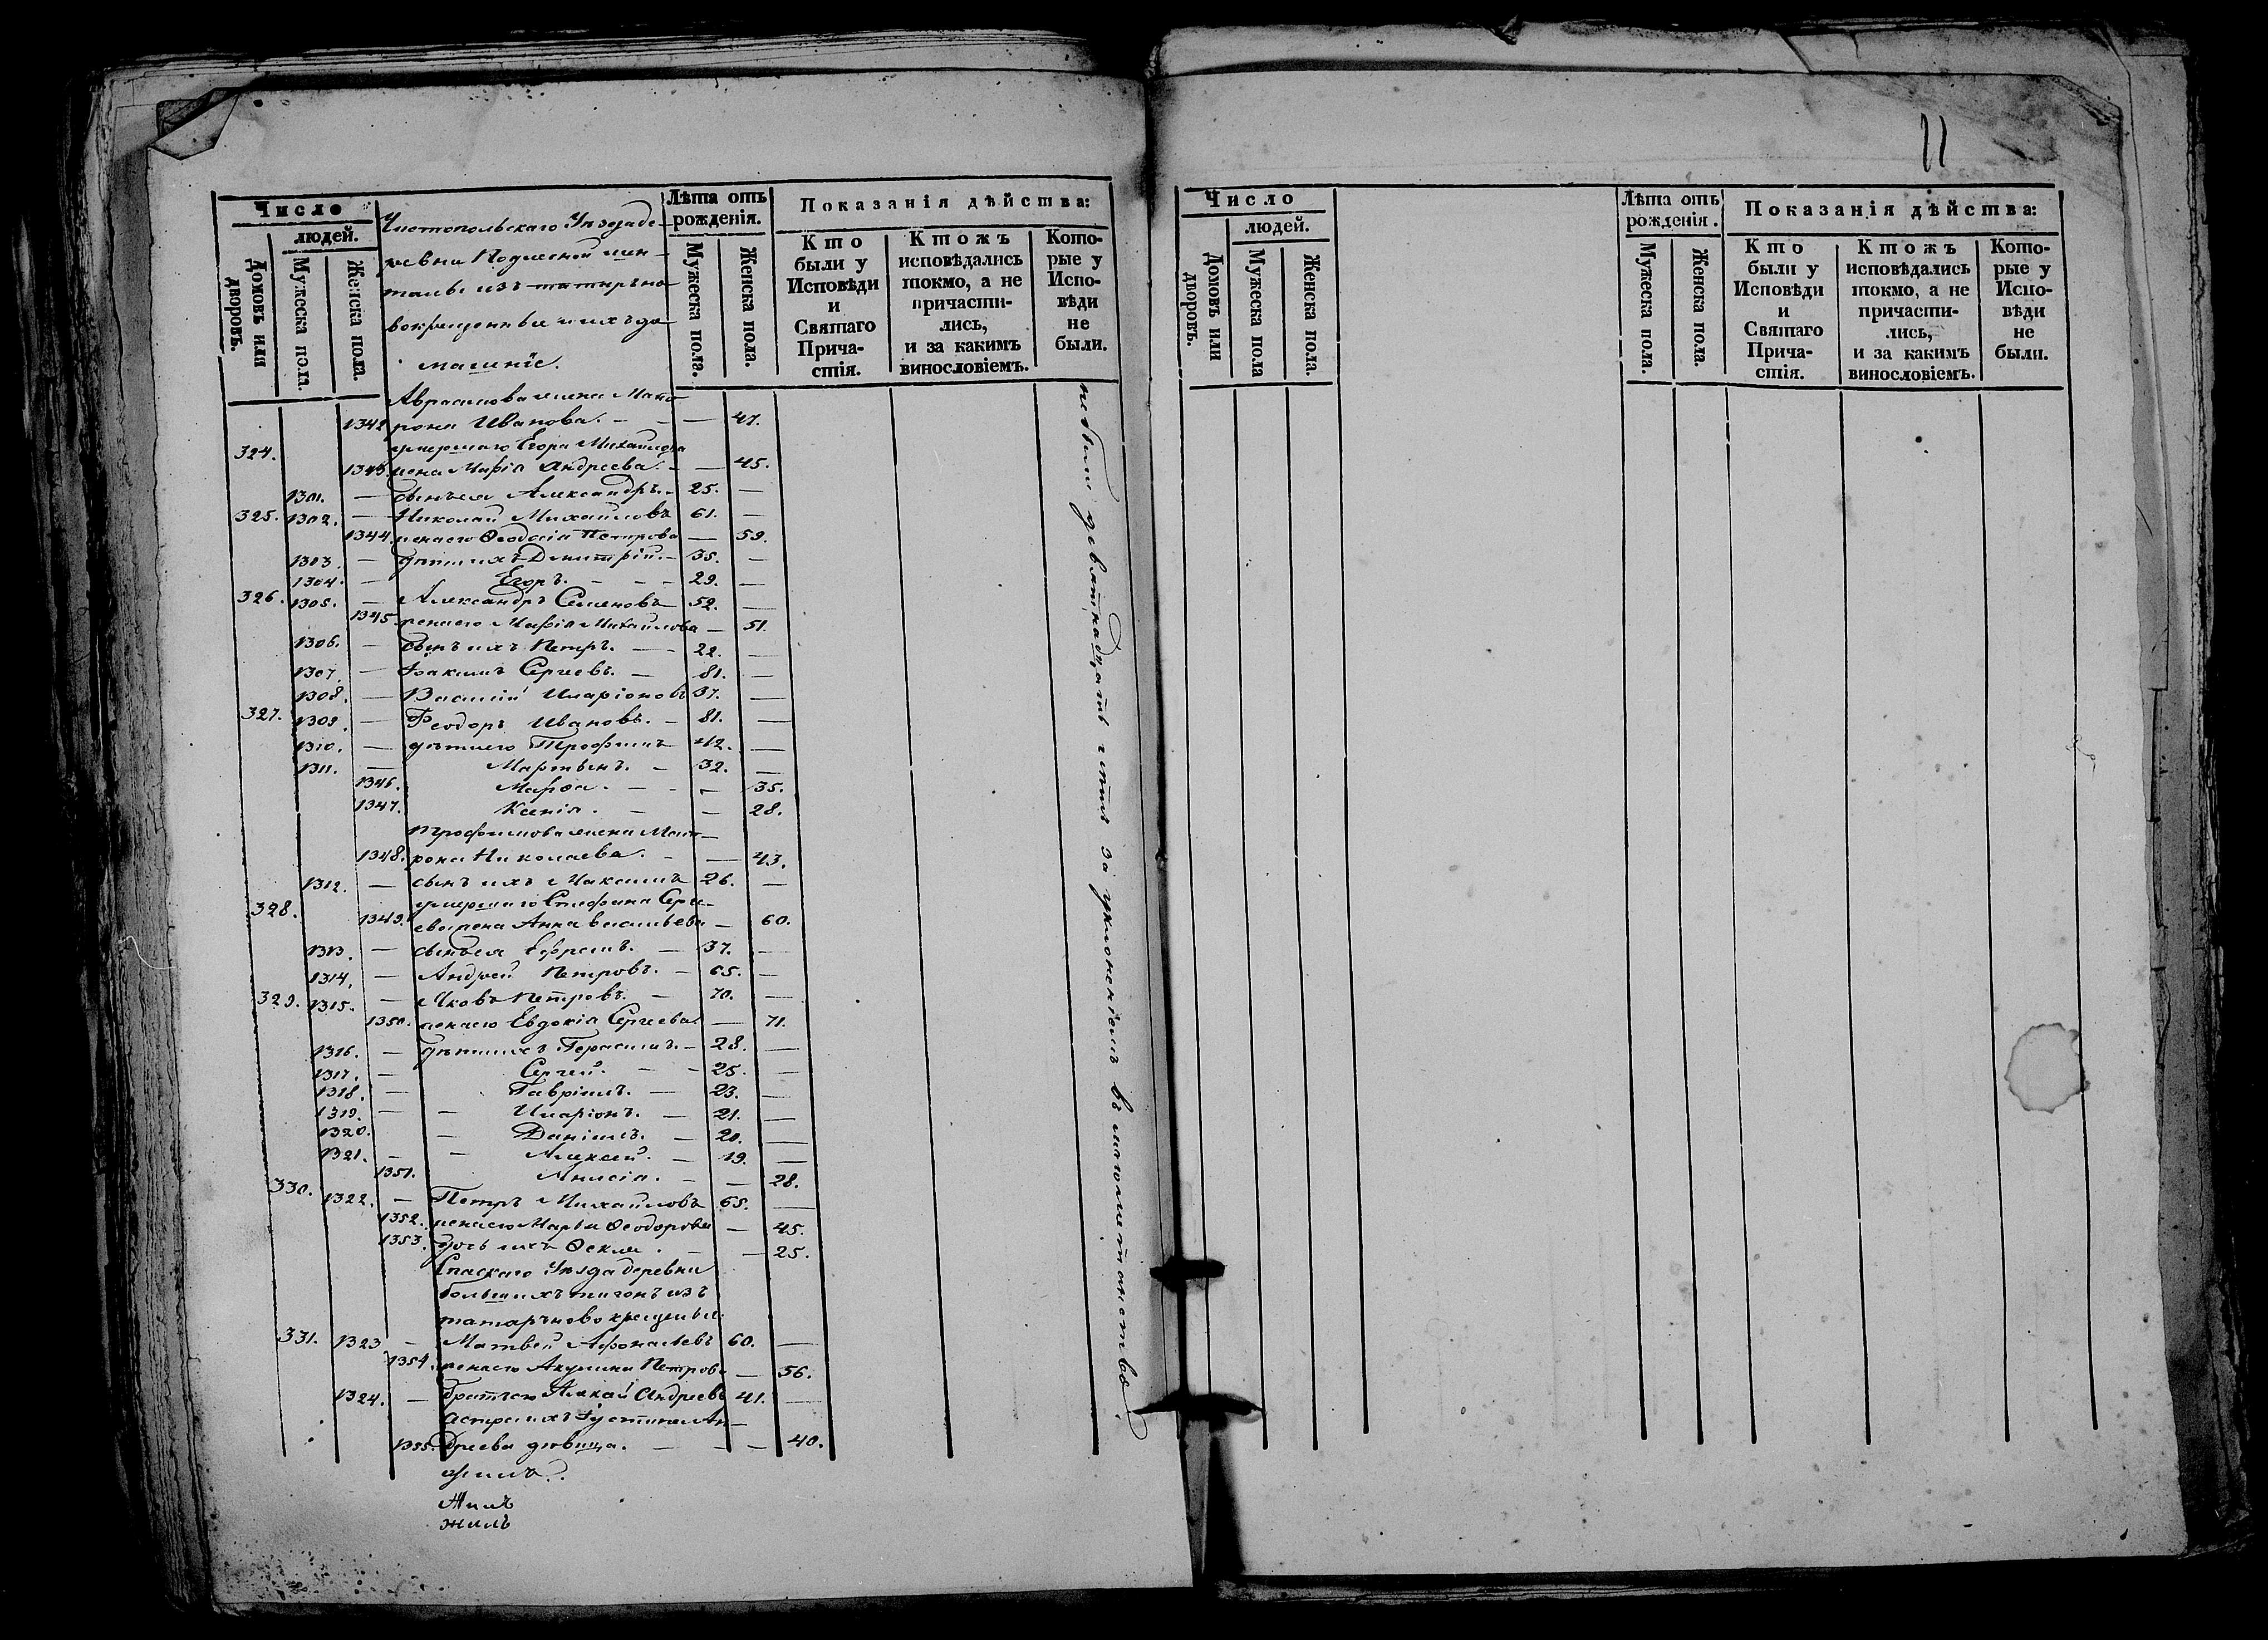 Число
людей.
Домовъ или дворовъ.
Мужеска пола.
Женска пола.
Чистопольскаго Уѣзда де-
ревни Подлесной шен-
талы изъ татаръ но-
вокрещенные и ихъ до-
машніе.
Лѣта отъ рожденія.
Мужеска пола.
Женска пола.
Показанія дѣйства:
Кто были у Исповѣди и Святаго Прича-стія.
Ктожъ исповѣдались токмо, а не причасти-лись, и за какимъ винословіемъ.
Кото-рые у Испо-вѣди не были.
Авраамова жена Мат-
1342 рона Иванова. — — 47.
324. умершаго Егора Михайлова
1343. жена Марія Андреева. — — 45.
1301. — сынъ ея Александръ. 25. —
325. 1302. — Николай Михайловъ 61. —
1344. жена его Ѳеодосія Петрова — 59.
1303. — дѣти ихъ Димитрій. — 35. —
1304. — Егоръ. — — — 29. —
326. 1305. — Александръ Семеновъ 52. —
1345. жена его Марія Михайлова — 51.
1306. — сынъ ихъ Петръ. — — 22. —
1307. — Іоакимъ Сергиевъ. — 81. —
1308. — Василій Иларіоновъ 37. —
327. 1309. — Феодоръ Ивановъ. — 81. —
1310. — дѣти его Трофимъ 42. —
1311. — Мартынъ. — 32. —
1346. Марфа. — — — 35.
1347. Ксенія. — — 28.
Трофимова жена Мат-
1348. рона Николаева. — — 43.
1312. — сынъ ихъ Максимъ 26. —
328. умершаго Стефана Серги-
1349. ева жена Анна Васильева — 60.
1313. — сынъ ея Ефремъ. — 37. —
1314. — Андрей Петровъ. — 65. —
329. 1315. — Яковъ Петровъ. — 70. —
1350. жена его Евдокія Сергиева — 71.
1316. — дѣти ихъ Герасимъ. — 28. —
1317. — Сергей. — — 25. —
1318. — Гавріилъ. — 23. —
1319. — — Иларіонъ. — 21. —
1320. — Даніилъ. — 20. —
1321. — — Алексей. — 19. —
1351. Анисія. — — 28.
330. 1322. — Петръ Михайловъ 65. —
1352. жена его Марѳа Ѳеодорова — 45.
1353. дочь ихъ Ѳекла. — — 25.
Спаскаго Уѣзда деревни
большихъ тигонъ изъ
татаръ новокрещеные
331. 1323 — Матвей Афонасьевъ 60. —
1354. жена его Акулина Петрова — 56.
1324. — братъ его Андреевъ 41. —
сестра ихъ Іустина Ан-
1355. дреева девица. — — — 40.
жилъ
жилъ
не были девятнадцать летъ за уклоненіемъ въ магометанство.
11
Число
людей.
Домовъ или дворовъ.
Мужеска пола
Женска пола.
Лѣта отъ рожденія.
Мужеска пола.
Женска пола
Показанія дѣйства:
Кто были у Исповѣди и Святаго Прича-стія.
Ктожъ исповѣдались токмо, а не причасти-лись, и за какимъ винословіемъ.
Кото-рые у Испо-вѣди не были.